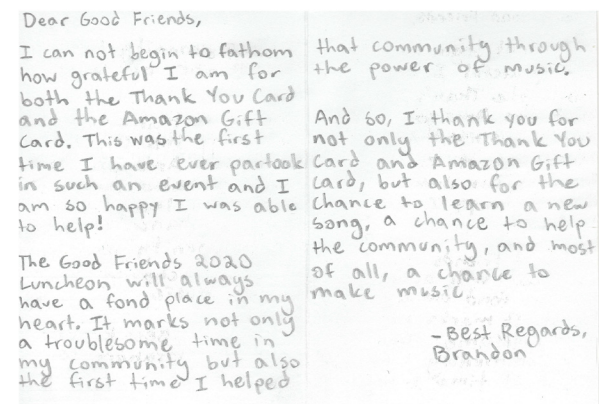 Dear Good Friends,
I can not begin to fathom
how grateful I am for
both the Thank You Card
and the Amazon Gift
Card. This was the first
time I have ever partook
in such an event and I
am so happy I was able
to help!
The Good Friends 2020
Luncheon will always
have a fond place in my
heart. It marks not only
a troublesome time in
my community but also
the first time I helped
that community through
the power of music.
And so, I thank you for
not only the Thank You
Card and Amazon Gift
Card, but also for the
Chance to learn a new
song, a chance to help
the community, and most
of all, a chance to
make music.
-Best Regards,
Brandon